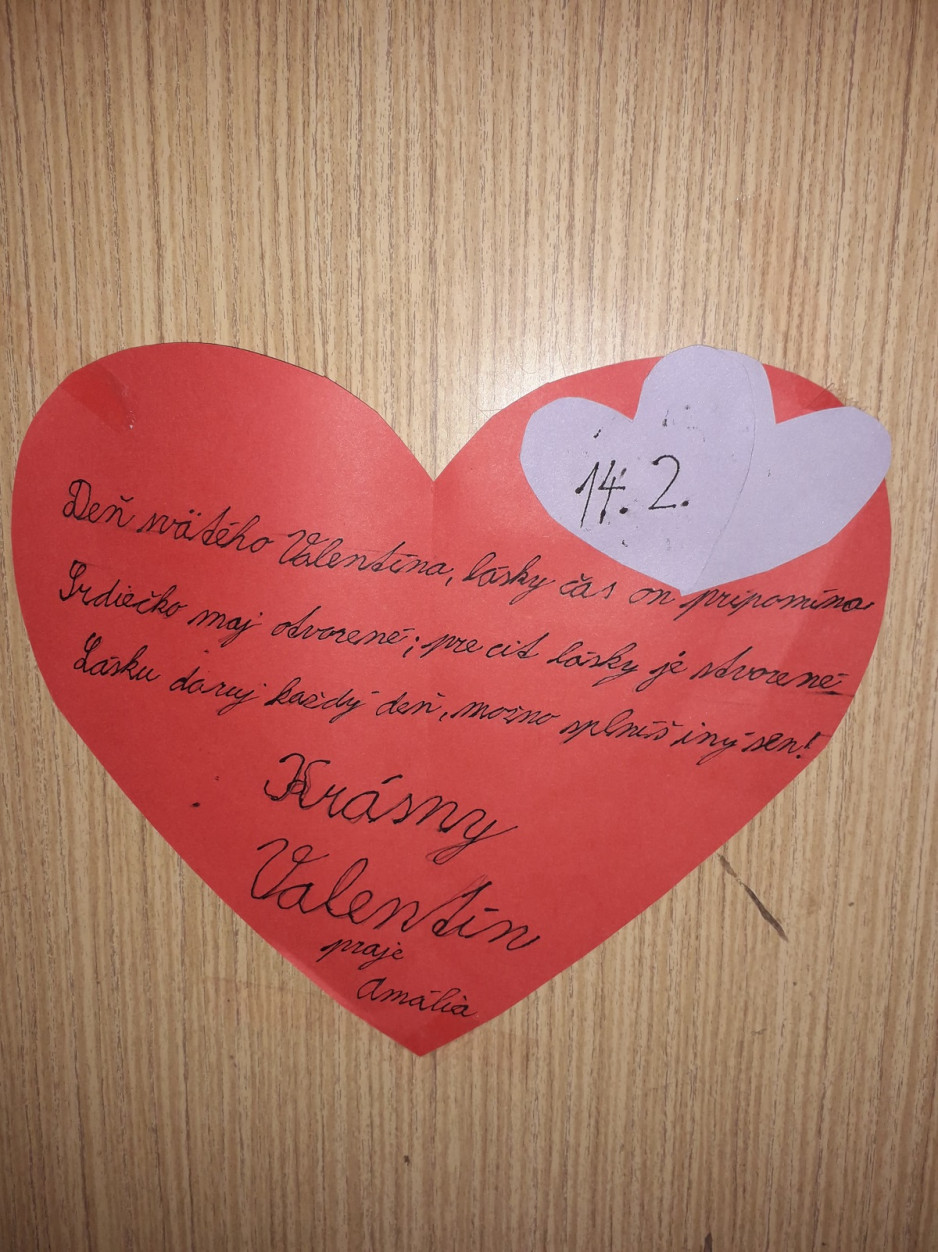 14. 2.
Deň svätého Valentína, lásky čas on pripomína
Srdiečko maj otvorené; pre cit lásky je stvorené
Lásku daruj každý deň, možno splníš iný sen!
Krásny
Valentín
praje
Amália